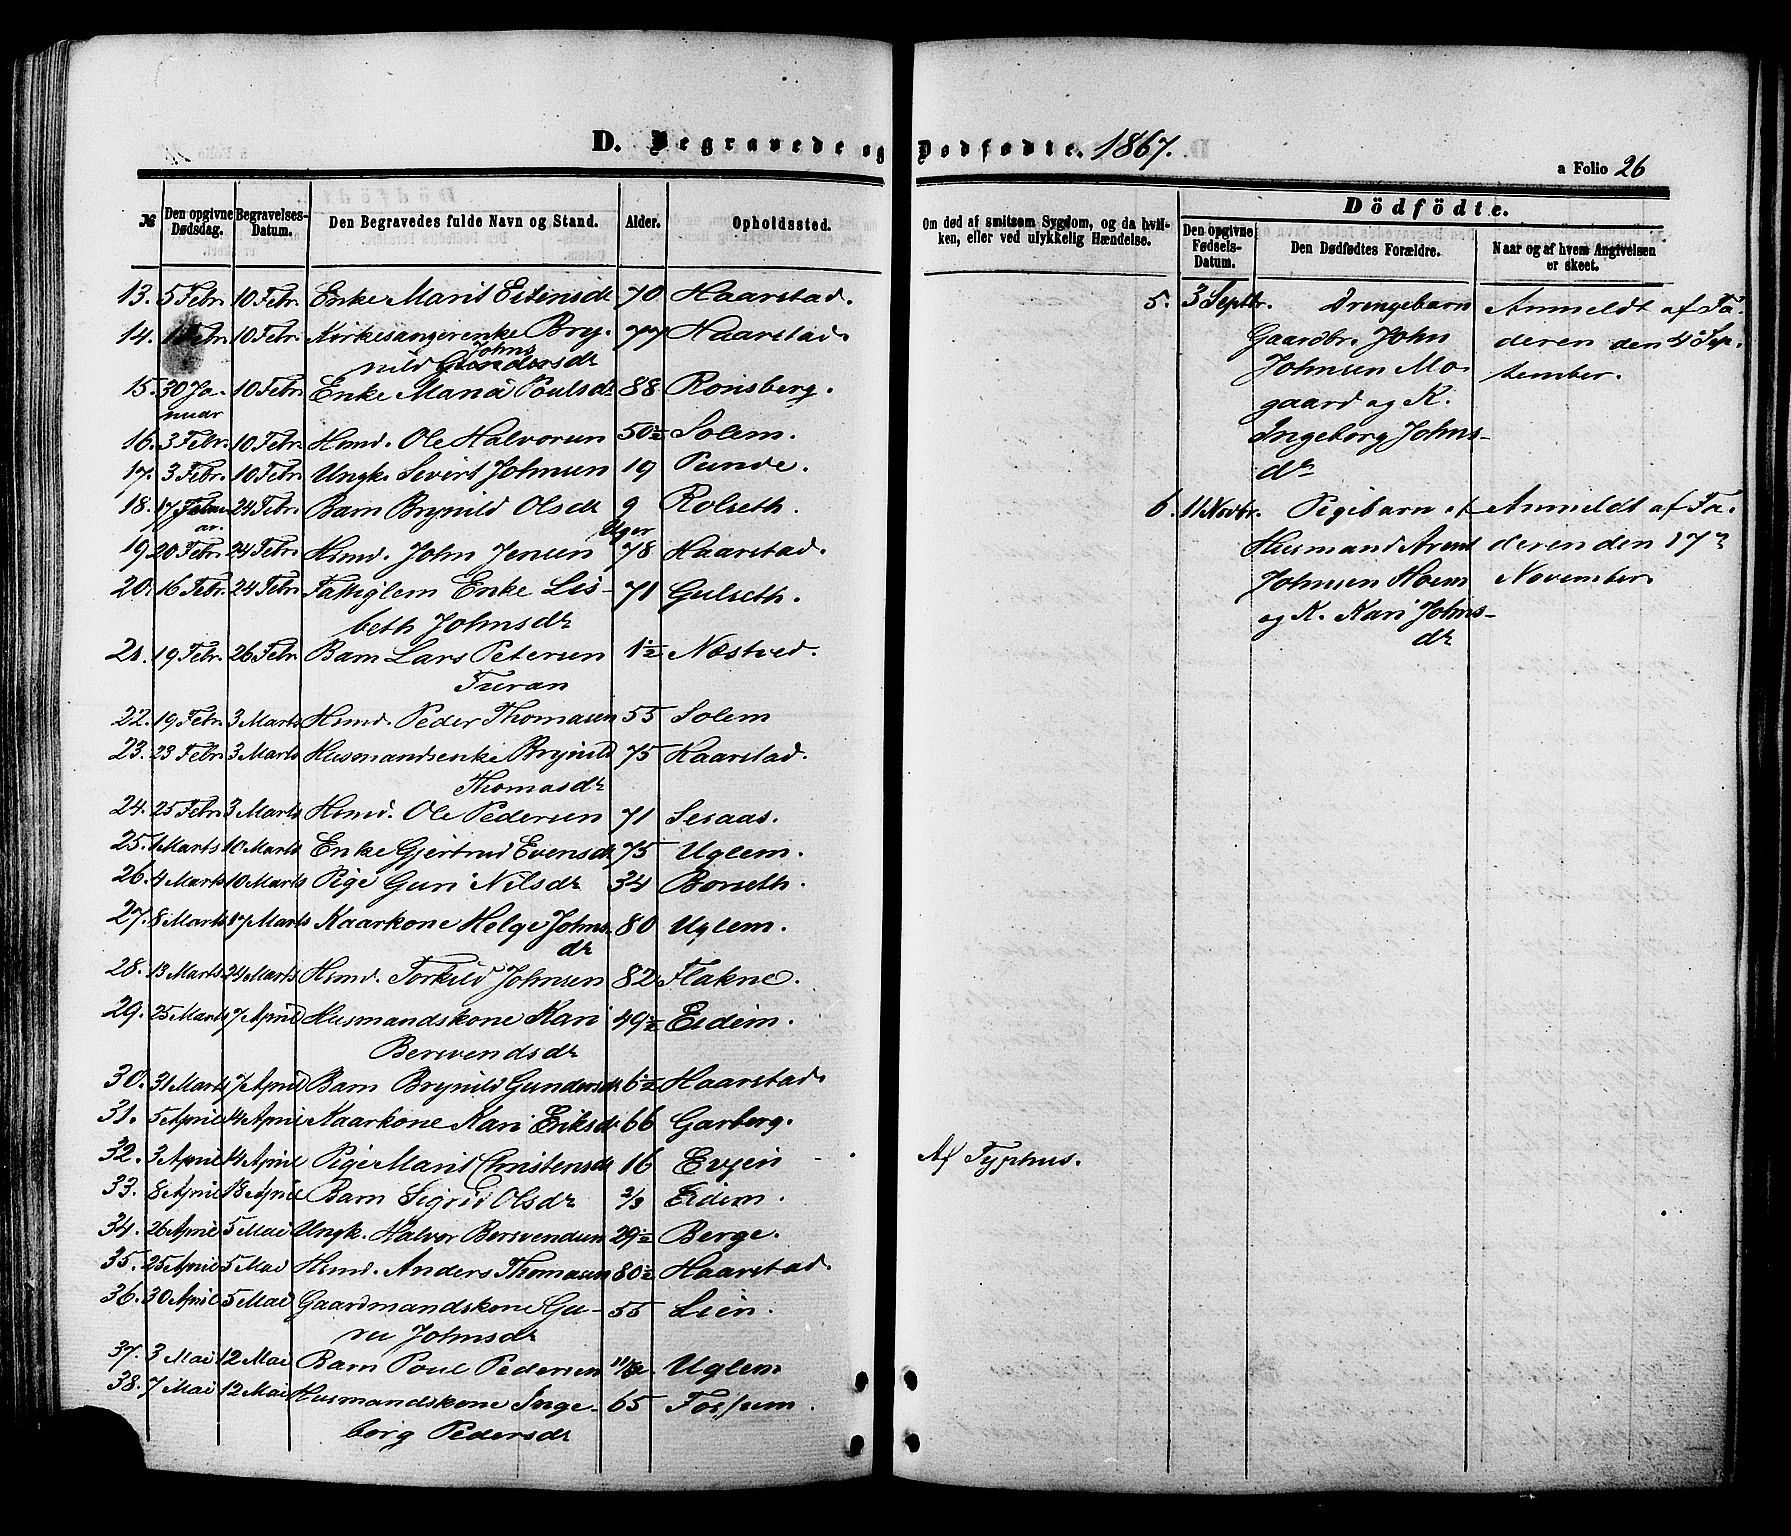 D. Begravede og Dödfödte. 1867.
a Folio 26
№ Den opgivne Dødsdag. Begravelses-Datum. Den Begravedes fulde Navn og Stand. Alder. Opholdssted.
13. 5 Febr. 10 Febr. Enke Marit Estensdr 70 Haarstad.
14. Febr. 10 Febr. Kirkesangerenke Bry- 77 Haarstad.
Johns
nild Gundersdr
15. 30 Ja- 10 Febr. Enke Maria Poulsdr 88 Rönsberg.
nuar
16. 3 Febr. 10 Febr. Hsmd. Ole Halvorsen 50½ Solem.
17. 3 Febr. 10 Febr. Ungk. Sivert Johnsen 19 Punde.
18. 17 Febru- 24 Febr. Barn Brynild Olsdr 9 Rolseth.
ar. Uger
19. 20 Febr. 24 Febr. Hsmd. John Jensen 78 Haarstad.
20. 16 Febr. 24 Febr. Fattiglem Enke Lis- 71 Gulseth.
beth Johnsdr
21. 19 Febr. 26 Febr. Barn Lars Petersen 1½ Næstved.
Furan
22. 19 Febr. 3 Marts Hsmd. Peder Thomasen 55 Solem
23. 23 Febr. 3 Marts Husmandsenke Brynild 75 Haarstad.
Thomasdr
24. 25 Febr. 3 Marts Hsmd. Ole Pedersen 71 Sesaas.
25. 1 Marts 10 Marts Enke Gjertrud Evensdr 75 Uglem.
26. 4 Marts 10 Marts Pige Guri Nilsdr 34 Borseth.
27. 8 Marts 17 Marts Kaarkone Helge Johns- 80 Uglem.
dr
28. 13 Marts 24 Marts Hsmd. Torkild Johnsen 82 Flakne.
29. 25 Marts 7 April Husmandskone Kari 49½ Eidem.
Bersvendsdr
30. 31 Marts 7 April Barn Brynild Gundersdr 6½ Haarstad.
31. 5 April 14 April Kaarkone Kari Eriksdr 66 Garberg.
32. 3 April 14 April Pige Marit Christensdr 16 Evjen
33. 8 April 18 April Barn Sigrid Olsdr 2/3 Eidem.
34. 26 April 5 Mai Ungk. Halvor Bersvendsen 29½ Berge.
35. 25 April 5 Mai Hsmd. Anders Thomasen 80½ Haarstad.
36. 30 April 5 Mai Gaardmandskone Gu- 55 Lien.
ru Johnsdr
37. 3 Mai 12 Mai Barn Poul Pedersen 11/12 Uglem
38. 7 Mai 12 Mai Husmandskone Inge- 65 Fossum.
borg Pedersdr
Om død af smitsom Sygdom, og da hvil-
ken, eller ved ulykkelig Hændelse.
Af Typhus.
Dödfödte.
Den opgivne Fødsels-Datum. Den Dødfødtes Forældre. Naar og af hvem Angivelsen er skeet.
5. 3 Septbr. Drengebarn Anmeldt af Fa-
Gaardbr. John deren den 4de Sep-
Johnsen Mo- tember.
gaard og K.
Ingeborg Johns-
dr
6. 11 Novbr. Pigebarn af Anmeldt af Fa-
Husmand Arent deren den 17de
Johnsen Hoem November
og K. Kari Johns-
dr